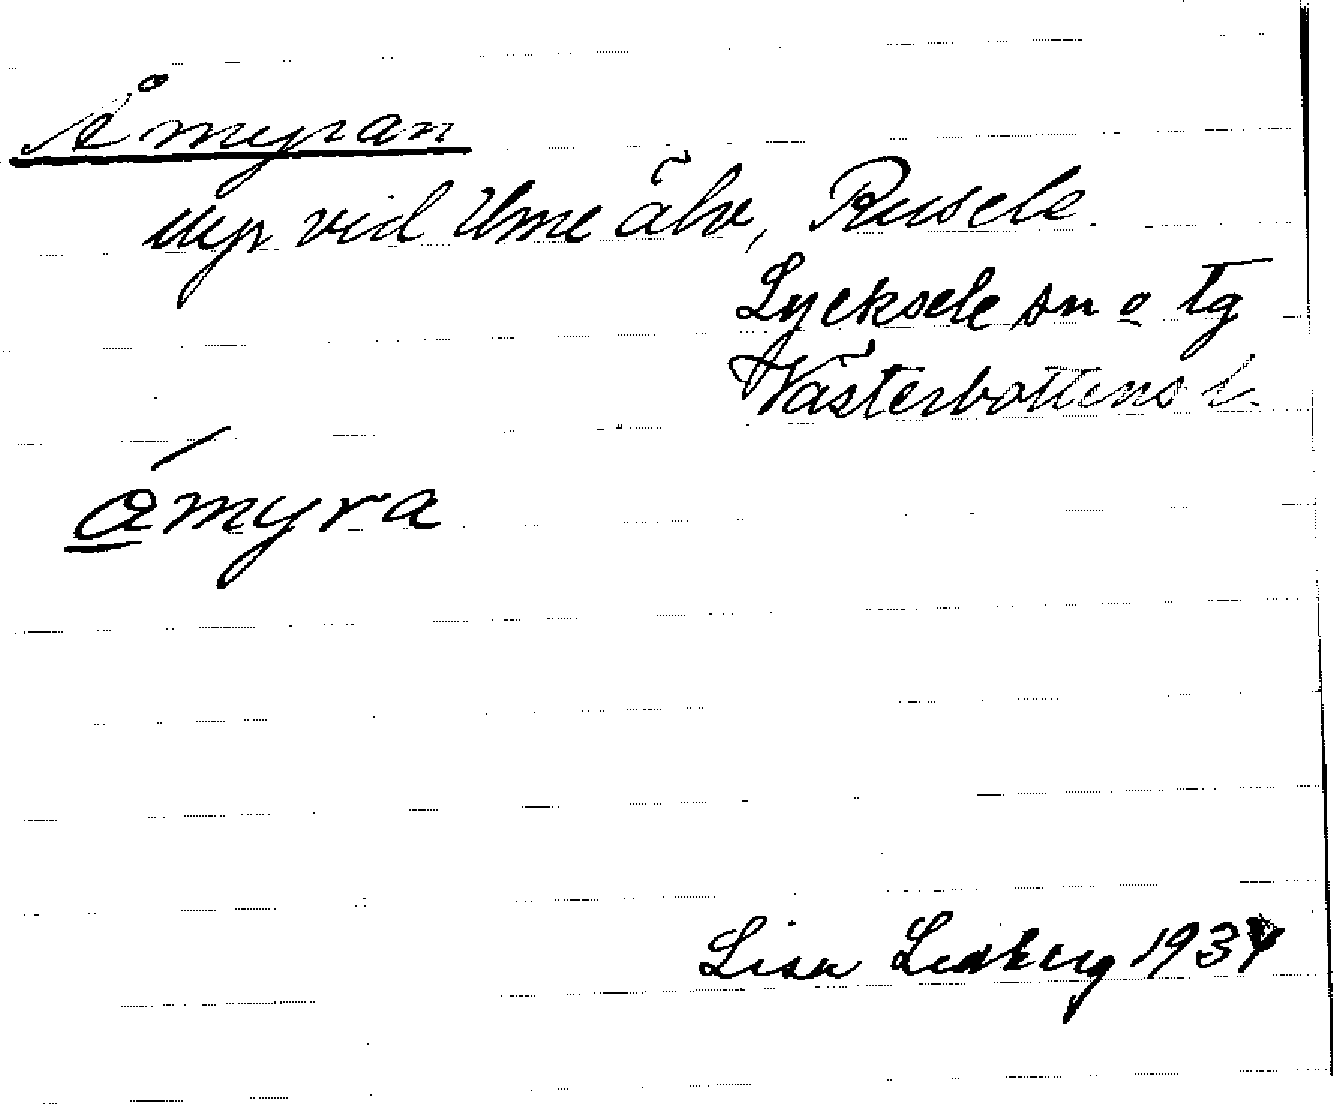 Åmyran
myr vid Ume älv, Rusele.
Lycksele sn o tg
Västerbottens l.
åmyra
Lisa Lidberg 1934